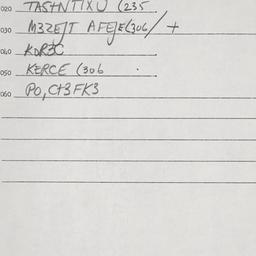 020 TASTNTIXU (235
030 M3ZEJT AFEJE(306/ +
040 KDR3C
050 KERCE (306
060 PO,CT3FK3